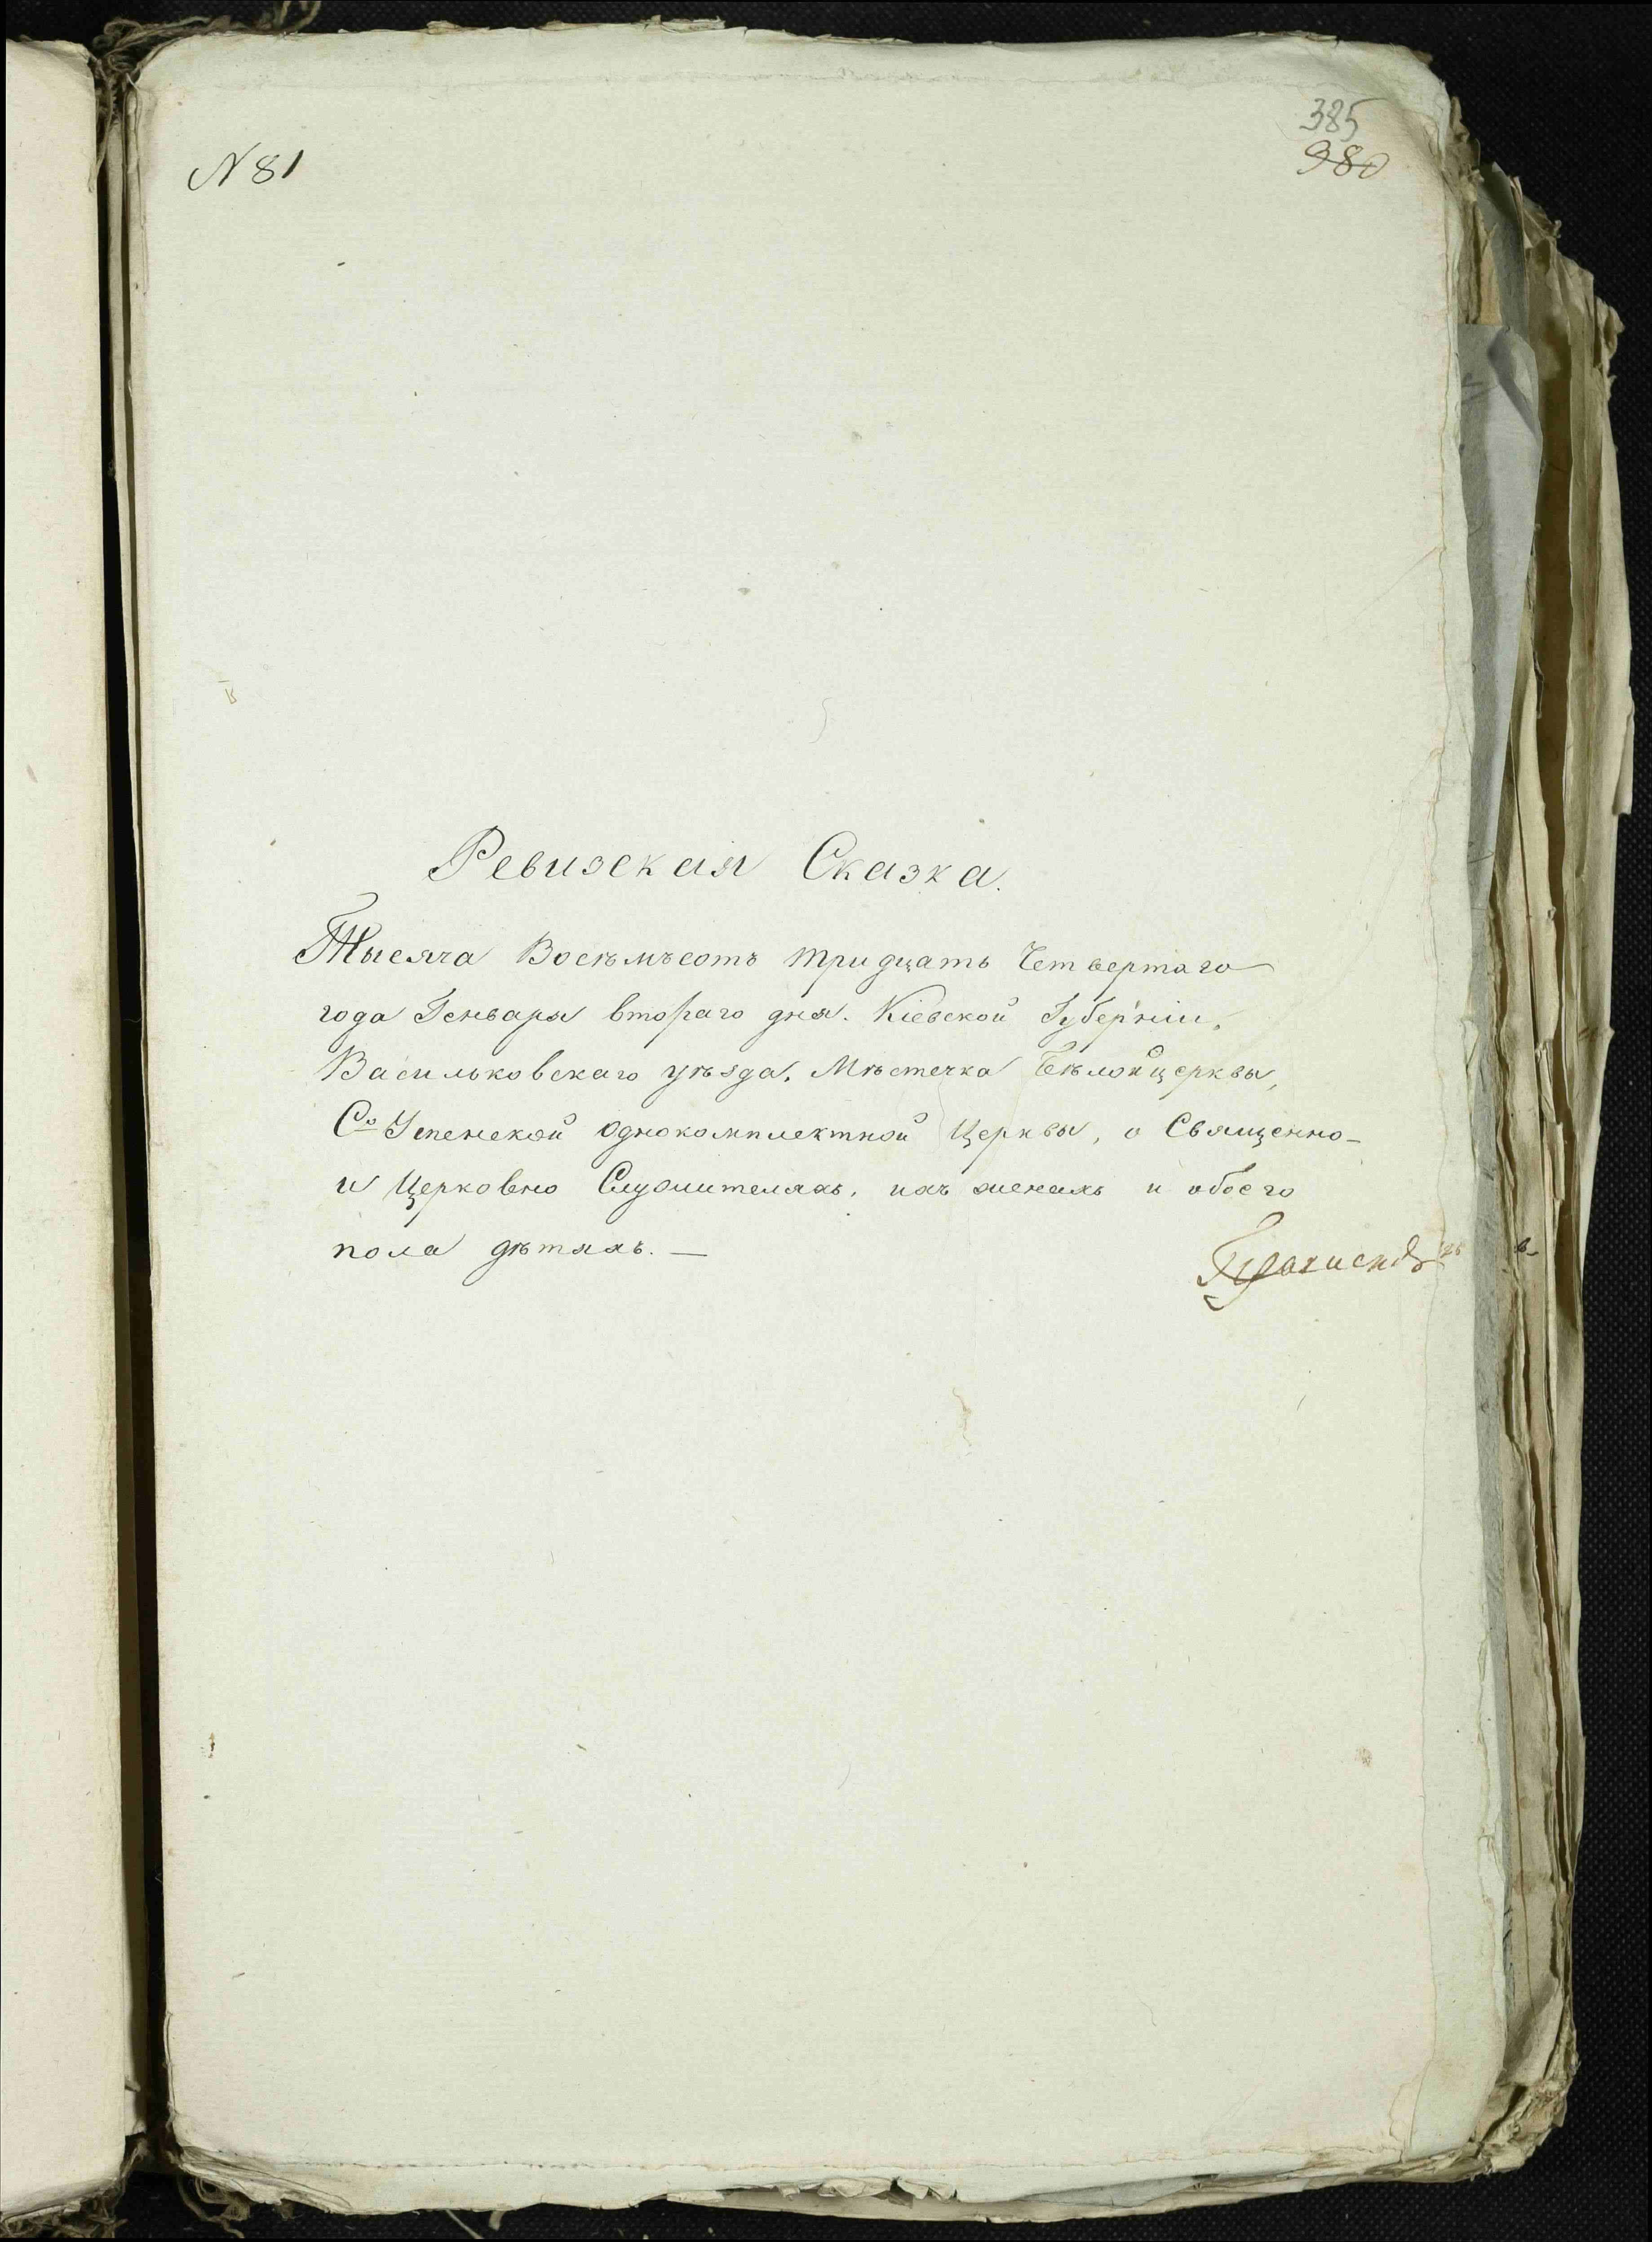 385
980
N 81
Ревизская Сказка.
Тысяча Восѣмъсотъ тридцать Четвертаго
года Генваря втораго дня. Кіевской Губерніи,
Васильковскаго уѣзда, Мѣстечка Бѣлойцерквы,
Со Успенской однокомплектной Церквы, о Священно-
и Церковно Служителяхъ, ихъ женахъ и обоего
пола дѣтяхъ. —